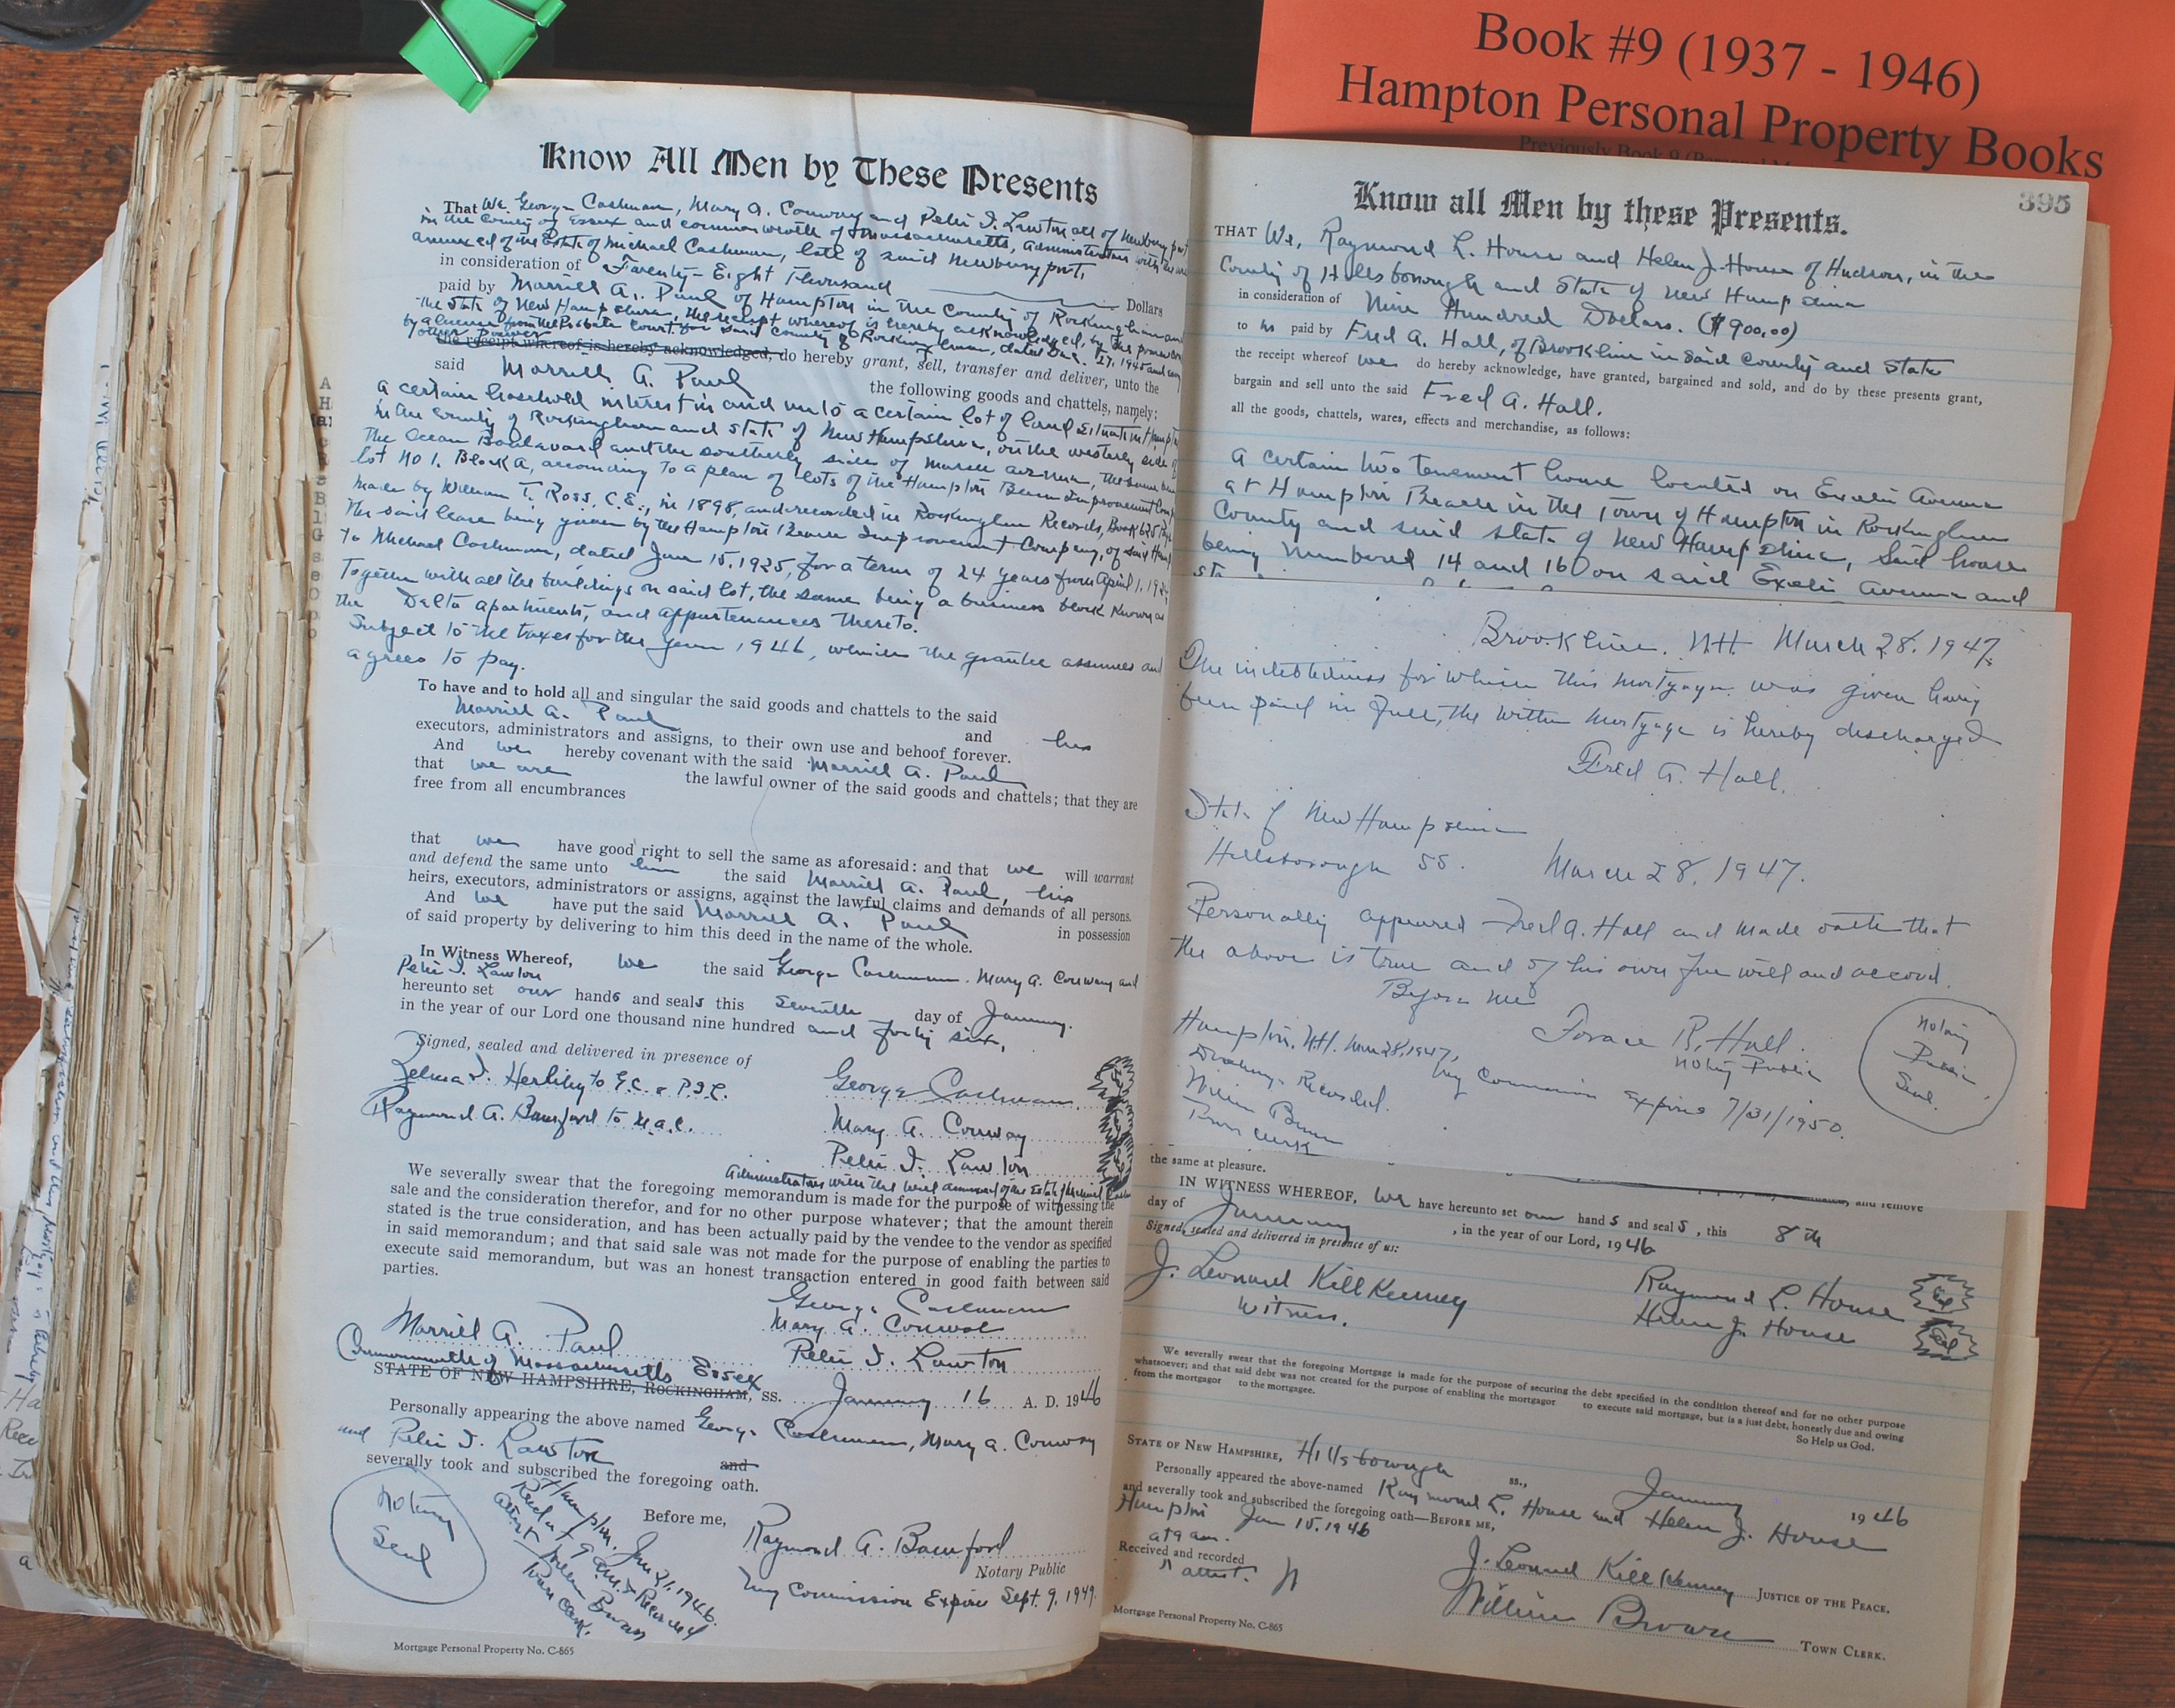 Book #9 (1937 - 1946)
Hampton Personal Property Books
Know All Men by These Presents
That We George Cashman, Mary A. Conway and Peter I. Lawton all of Newburyport
in the County of Essex and commonwealth of Massachusetts, administrators with the will
annexed of the Estate of Michael Cashman, late of said Newburyport,
in consideration of Twenty-Eight Thousand Dollars
paid by Morrill A. Paul of Hampton in the County of Rockingham and
the State of New Hampshire, the receipt whereof is hereby acknowledged, by the power
by a license from the Probate Court for said County of Rockingham, dated Dec. 27, 1945 and
other powers
the receipt whereof is hereby acknowledged, do hereby grant, sell, transfer and deliver, unto the
said Morrill A. Paul the following goods and chattels, namely:
A certain leasehold interest in and unto a certain lot of land situate in
in the County of Rockingham and State of New Hampshire, on the westerly side of
the Ocean Boulevard and the southerly side of Marsh avenue, the same
lot No 1. Block A, according to a plan of lots of the Hampton Beach Improvement
made by William T. Ross, C.E., in 1898, and recorded in Rockingham Records, Book 625
the said lease being given by the Hampton Beach Improvement Company, of said
to Michael Cashman, dated June 15, 1925, for a term of 24 years from April 1, 192
Together with all the buildings on said lot, the same being a business block known as
the Delta apartments, and appurtenances thereto.
Subject to the taxes for the year 1946, which the grantee assumes and
agrees to pay.
To have and to hold all and singular the said goods and chattels to the said
Morrill A. Paul and his
executors, administrators and assigns, to their own use and behoof forever.
And we hereby covenant with the said Morrill A. Paul
that we are the lawful owner of the said goods and chattels; that they are
free from all encumbrances
that we have good right to sell the same as aforesaid: and that we will warrant
and defend the same unto him the said Morrill A. Paul, his
heirs, executors, administrators or assigns, against the lawful claims and demands of all persons.
And we have put the said Morrill A. Paul in possession
of said property by delivering to him this deed in the name of the whole.
In Witness Whereof, we the said George Cashman, Mary A. Conway and
Peter I. Lawton
hereunto set our hands and seals this Seventh day of January.
in the year of our Lord one thousand nine hundred and forty six,
Signed, sealed and delivered in presence of
Zelma I. Herlihy to G.C. & P.I.L. George Cashman
Raymond A. Bamford to M.A.C. Mary A. Conway
Peter I. Lawton
Administrators with the will annexed of the Estate of Michael Cashman
We severally swear that the foregoing memorandum is made for the purpose of witnessing the
sale and the consideration therefor, and for no other purpose whatever; that the amount therein
stated is the true consideration, and has been actually paid by the vendee to the vendor as specified
in said memorandum; and that said sale was not made for the purpose of enabling the parties to
execute said memorandum, but was an honest transaction entered in good faith between said
parties.
George Cashman
Morrill A. Paul Mary A. Conway
Peter I. Lawton
Commonwealth of Massachusetts Essex
STATE OF NEW HAMPSHIRE, ROCKINGHAM, ss. January 16 A. D. 1946
Personally appearing the above named George Cashman, Mary A. Conway
and Peter I. Lawton and
severally took and subscribed the foregoing oath.
Before me,
Raymond A. Bamford
Notary Public
My Commission Expires Sept. 9, 1949.
Notary
Seal
Hampton, Jan 21, 1946.
Rec'd 9 A.M. & Recorded
attest William Brown
Town Clerk.
Mortgage Personal Property No. C-865
395
Know all Men by these Presents.
THAT We, Raymond L. House and Helen J. House of Hudson, in the
County of Hillsborough and State of New Hampshire
in consideration of Nine Hundred Dollars. ($900.00)
to us paid by Fred A. Hall, of Brookline in said County and State
the receipt whereof we do hereby acknowledge, have granted, bargained and sold, and do by these presents grant,
bargain and sell unto the said Fred A. Hall.
all the goods, chattels, wares, effects and merchandise, as follows:
A certain two tenement house located on Exeter Avenue
at Hampton Beach in the Town of Hampton in Rockingham
County and said state of New Hampshire, said house
being numbered 14 and 16 on said Exeter Avenue and
Brookline. N.H. March 28, 1947.
The indebtedness for which this mortgage was given having
been paid in full, the within Mortgage is hereby discharged
Fred A. Hall.
State of New Hampshire
Hillsborough SS. March 28, 1947.
Personally appeared Fred A. Hall and made oath that
the above is true and of his own free will and accord.
Before me
R. Hall.
Notary Public
My Commission Expires 7/31/1950.
Notary
Public
Seal.
Hampton, N.H. 28, 1947,
Recorded.
William Brown
Town Clerk
the same at pleasure.
and remove
IN WITNESS WHEREOF, we have hereunto set our hands and seals, this 8th
day of January, in the year of our Lord, 1946
Signed, sealed and delivered in presence of us:
J. Leonard Killkenney Raymond L. House
Witness. Helen J. House
Seal
Seal
We severally swear that the foregoing Mortgage is made for the purpose of securing the debt specified in the condition thereof and for no other purpose
whatsoever; and that said debt was not created for the purpose of enabling the mortgagor to execute said mortgage, but is a just debt, honestly due and owing
from the mortgagor to the mortgagee.
So Help us God.
STATE OF NEW HAMPSHIRE, Hillsborough ss., January 1946
Personally appeared the above-named Raymond L. House and Helen J. House
and severally took and subscribed the foregoing oath—BEFORE ME,
Hampton Jan 15, 1946
at 9 am.
Received and recorded
attest.
J. Leonard Killkenney JUSTICE OF THE PEACE.
William Brown TOWN CLERK.
Mortgage Personal Property No. C-865